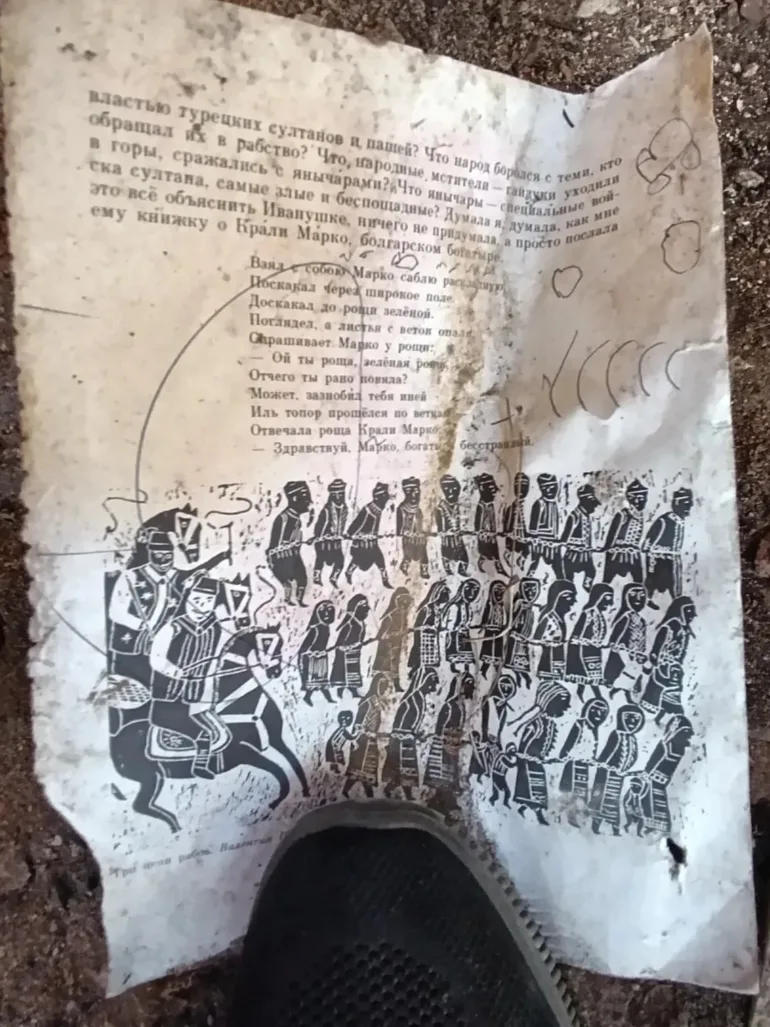 властью турецких султанов и пашей? Что народ боролся с теми, кто
обращал их в рабство? Что народные мстители — гайдуки уходили
в горы, сражались с янычарами? Что янычары — специальные вой-
ска султана, самые злые и беспощадные? Думала я, думала, как мне
это всё объяснить Иванушке, ничего не придумала, а просто послала
ему книжку о Крали Марко, болгарском богатыре.
Взял с собою Марко саблю
Поскакал через широкое поле.
Доскакал до рощи зелёной.
Поглядел, а листья с веток опали.
Спрашивает Марко у рощи:
— Ой ты роща, зелёная роща,
Отчего ты рано повяла?
Может, зазнобил тебя иней
Иль топор прошёлся по веткам
Отвечала роща Крали Марко:
— Здравствуй, Марко, богатырь бесстрашный.
Три цепи рабов. Валентин